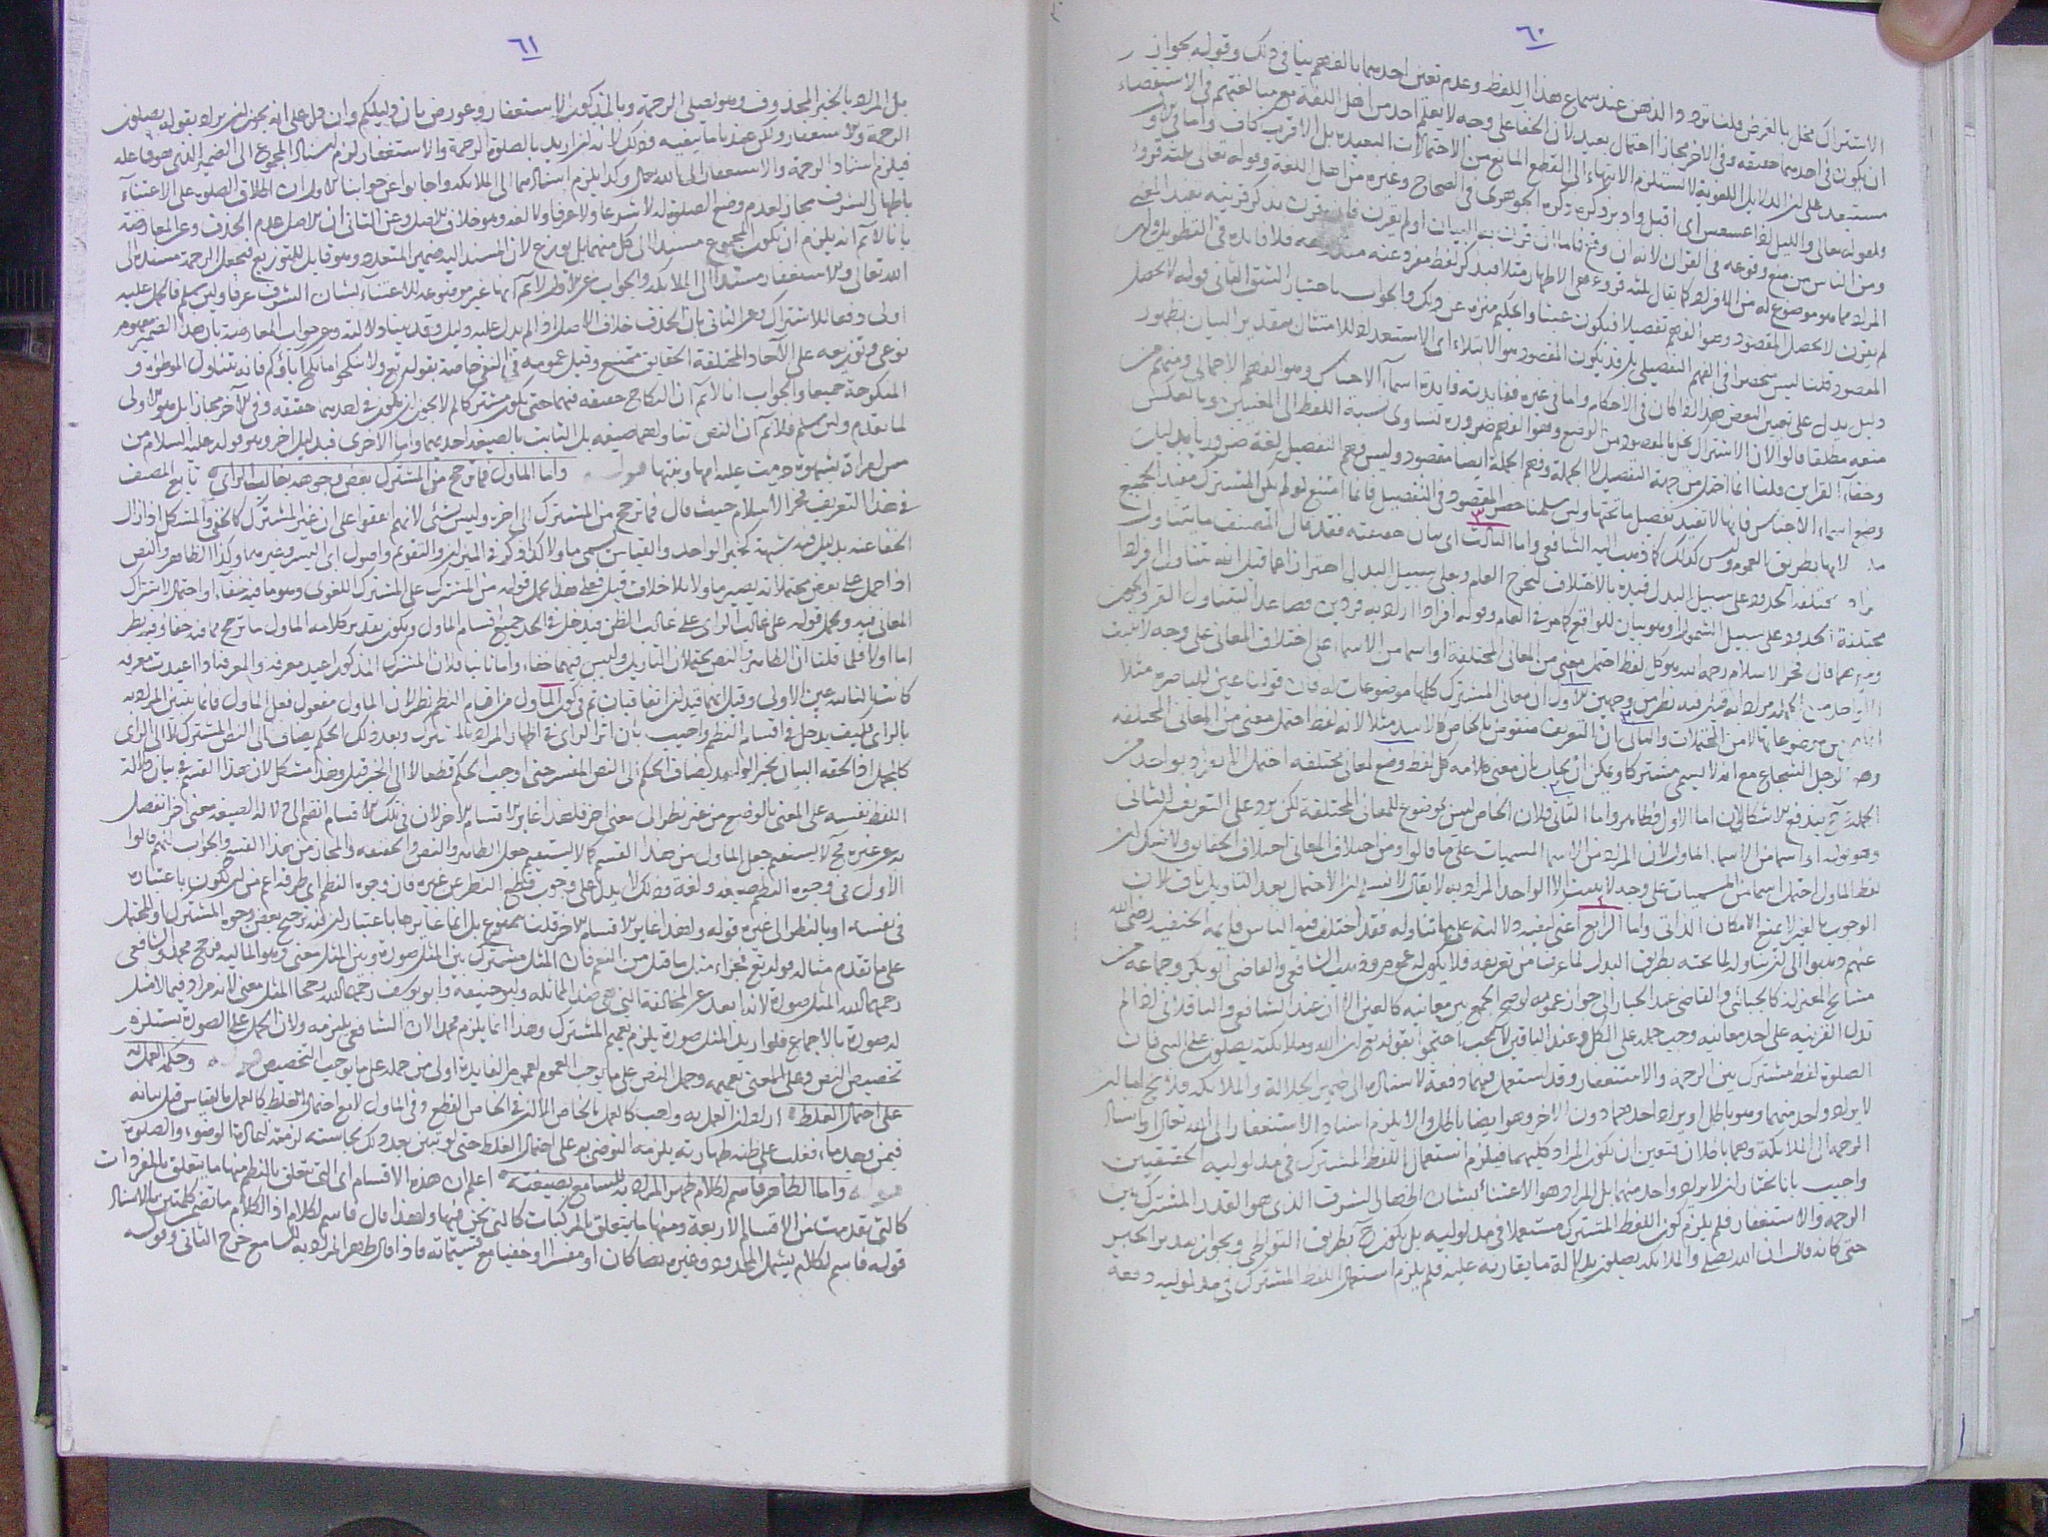 ٦٠
الاشتراك مخل بالغرض قلنا تردد الذهن عند سماع هذا اللفظ وعدم تعين احدهما بالفهم ينافى ذلك وقوله بجواز
ان يكون فى احدهما حقيقه وفى الاخر مجاز احتمال بعيد لان الخفا على وجه لا يعلم احد من اهل اللغة مع مبالغتهم فى الاستقصاء
مستبعد على ان الدلايل اللغوية لا تستلزم الانتهاء الى القطع المانع من الاحتمالات البعيده بل الاقرب كاف واما
ولقوله تعالى والليل اذا عسعس أى اقبل وادبر ذكره الجوهرى فى الصحاح وغيره من اهل اللغة وقوله تعالى ثلثة قروء
ومن الناس من منع وقوعه فى القران لانه ان وقع فاما ان قرن به البيان او لم يقرن فان قرن بذكر قرينه
المراد مما هو موضوع له من الافراد كما يقال ثلثه قروء هى الاطهار مثلا فيذكر لفظ مفرد عنه فلا فايده فى التطويل وان
لم يقرن لا يحصل المقصود وهو الفهم تفصيلا فيكون عبثا والحكيم منزه عن ذلك والجواب باختيار الشق الثانى قوله لا يحصل
المقصود قلنا ليس منحصرا فى الفهم التفصيلى بل قد يكون المقصود هو الابتلاء اى الاستعداد للامتثال بتقدير البيان بظهور
دليل يدل على تعيين البعض هذا اذا كان فى الاحكام واما فى غيره ففايدته فايدة اسماء الاجناس وهو الفهم الاجمالى ومنهم من
منعه مطلقا قالوا لان الاشتراك يخل بالمقصود من الوضع وهو الفهم ضروره تساوى نسبة اللفظ الى المعنيين
وخفاء القراين قلنا انما اختل من جهة التفصيل لا الجملة وفهم الجملة ايضا مقصود وليس فهم التفصيل لغة ضروريا بدليل
وضع اسماء الاجناس فانها لا تفيد تفصيل ما تحتها ولئن سلمنا حصر المقصود فى التفصيل فانما امتنع لو لم يكن المشترك مفيد الجميع
لا بها بطريق العموم وليس كذلك كما ذهب اليه الشافعى واما الثالث اى بيان حقيقته فقد قال المصنف ما يتناول
مختلفة الحدود على سبيل البدل فقيده بالاختلاف ليخرج العام وعلى سبيل البدل احتراز
مختلفة الحدود على سبيل الشمول وهو بيان للواقع كما مر فى العام وقوله افرادا اراد به فردين فصاعدا
فخر الاسلام رحمه الله هو كل لفظ احتمل معنى من المعانى المختلفة او اسما من الاسماء على اختلاف المعانى على وجه لا يثبت
الا واحد من الجملة مرادا به قيل فيه نظر من وجهين الاول ان معانى المشترك كلها موضوعات له فان قولنا عين للباصره مثلا
من موضوعاتها لا من المحتملات والثانى ان التعريف منقوض بالخاص كالاسد مثلا لانه لفظ احتمل معنى من المعانى المختلفه
الرجل الشجاع مع انه لا يسمى مشتركا ويمكن ان يجاب بان معنى كلامه كل لفظ وضع لمعان مختلفه احتمل ان يراد به واحد من
الجملة فح يندفع الاشكالان اما الاول فظاهر واما الثانى فلان الخاص ليس بموضوع للمعانى المختلفة لكن يرد على التعريف الثانى
وهو قوله او اسما من الاسماء الماول لان المراد من الاسماء المسميات على ما قالوا ومن اختلاف المعانى اختلاف الحقايق ولا شك ان
لفظ الماول احتمل اسما من المسميات على وجه لا يثبت الا الواحد المراد به لا يقال لا نسلم ان الاحتمال بعد التاويل باق لان
الوجوب بالغير لا يمنع الامكان الذاتى واما الرابع اعنى كيفية دلالته على ما تناوله فقد اختلف فيه الناس فايمه الحنفيه رضى الله
عنهم ذهبوا الى ان تناوله لما تحته بطريق البدل لما عرفنا من تعريفه فلا يكون له عموم وذهب الشافعى والقاضى ابو بكر وجماعه من
مشايخ المعتزلة كالجبائى والقاضى عبد الجبار الى جواز عمومه لو صح الجمع بين معانيه كالعين الا ان عند الشافعى والباقلانى اذا لم
تدل القرينه على احد معانيه وجب حمله على الكل وعند الباقين لا يجب احتجوا بقوله تع ان الله وملايكته يصلون على النبى فان
الصلوة لفظ مشترك بين الرحمة والاستغفار وقد استعمل فيهما دفعة لاسناده الى ضمير الجلالة والملايكة فلا يخ اما ان
لا يراد واحد منهما وهو باطل او يراد احدهما دون الاخر وهو ايضا باطل والا يلزم اسناد الاستغفار الى الله تعالى او اسناد
الرحمة الى الملائكة وهما باطلان فتعين ان يكون المراد كليهما فيلزم استعمال اللفظ المشترك فى مدلوليه الحقيقيين
واجيب بانا نختار ان لا يراد واحد منهما بل المراد هو الاعتناء بشان اظهار الشرف الذى هو القدر المشترك بين
الرحمة والاستغفار فلم يلزم كون اللفظ المشترك مستعملا فى مدلوليه بل يكون ح بطريق التواطى ويجوز تقدير الخبر
حتى كانه قال ان الله يصلى والملائكة يصلون بدلالة ما يقارنه عليه فلم يلزم استعمال اللفظ المشترك فى مدلوليه دفعة
٦١
بل المراد بالخبر المحذوف وهو يصلى الرحمة وبالمذكور الاستغفار وعورض بان دليلكم وان دل على انه يجوز ان يراد بقوله يصلون
الرحمة والاستغفار ولكن عندنا ما ينفيه وذلك لانه لو اريد بالصلوة الرحمة والاستغفار لزم اسناد المجموع الى الضمير الذى هو فاعله
فيلزم اسناد الرحمة والاستغفار الى الله تعالى وكذا يلزم اسنادهما الى الملائكة واجابوا عن جوابنا الاول ان اطلاق الصلوة على الاعتناء
باظهار الشرف مجاز لعدم وضع الصلوة له لا شرعا ولا عرفا ولا لغة وهو خلاف الاصل وعن الثانى ان الاصل عدم الحذف وعن المعارضة
بانا لا نم انه يلزم ان يكون المجموع مسندا الى كل منهما بل يوزع لان المسند اليه ضمير المتعدد وهو قابل للتوزيع فتجعل الرحمة مسندة الى
الله تعالى والاستغفار مسندا الى الملائكة والجواب عن الاول لا نم انها غير موضوعه للاعتناء بشان الشرف عرفا ولئن سلم فالحمل عليه
اولى دفعا للاشتراك وعن الثانى بان الحذف خلاف الاصل اذا لم يدل عليه دليل وقد بينا دلالته وعن جواب المعارضة بان هذا الضمير مفهوم
نوعى وتوزيعه على الآحاد المختلفة الحقايق ممتنع وقيل عمومه فى النفى خاصة بقوله تع ولا تنكحوا ما نكح آباؤكم فانه تتناول الموطؤة و
المنكوحة جميعا والجواب انا لا نم ان النكاح حقيقه فيهما حتى يكون مشتركا لم لا يجوز ان يكون فى احدهما حقيقه وفى الآخر مجازا بل هو الاولى
لما تقدم ولئن سلم فلا نم ان النص تناولهما صيغه بل الثابت بالصيغة احديهما واما الاخرى فبدليل اخر وهو قوله عليه السلام من
مس امراة بشهوة حرمت عليه امها وبنتها قوله واما الماول فما ترجح من المشترك بعض وجوهه بغالب الراى تابع المصنف
فى هذا التعريف فخر الاسلام حيث قال فما ترجح من المشترك الى اخره وليس بشئ لانهم اتفقوا على ان غير المشترك كالخفى والمشكل اذا زال
الخفا عنه بدليل فيه شبهة كخبر الواحد والقياس يسمى ماولا كذا ذكر فى الميزان والتقويم واصول ابى اليسر وغيرهما وكذا الظاهر والنص
اذا حمل على بعض محتملاته يصير ماولا بلا خلاف قيل فعلى هذا يحمل قوله من المشترك على المشترك اللغوى وهو ما فيه خفاء او احتمل الاشتراك
المعانى فيه ويحمل قوله على غالب الراى على غالب الظن فيدخل فى الحد جميع اقسام الماول ويكون تقدير كلامه الماول ما ترجح مما فيه خفاء وفيه نظر
اما اولا فلما قلنا ان الظاهر والنص يحتملان التاويل وليس فيهما خفاء واما ثانيا فلان المشترك المذكور اعيد معرفة والمعرفة اذا اعيدت معرفة
كانت الثانية عين الاولى وقيل انما قيد ان اتفاقيان ثم فى كون الماول من اقسام النظم نظر لان الماول مفعول فعل الماول فانما يتبين المراد به
بالراى فكيف يدخل فى اقسام النظم واجيب بان اثر الراى فى اظهار المراد بالمشترك وبعد ذلك الحكم يضاف الى النص المشترك لا الى الراى
كالمجمل اذا لحقه البيان بخبر الواحد يضاف الحكم الى النص المفسر حتى اوجب الحكم قطعا لا الى الخبر قيل وهذا مشكل لان هذا القسم فى بيان دلالة
اللفظ بنفسه على المعنى بالوضع من غير نظر الى معنى اخر فلهذا غاير الاقسام الاخر لان فى تلك الاقسام انضم الى دلالة الصيغة معنى اخر انفصل
به عن غيره فح لا يستقيم جعل الماول من هذا القسم كما لا يستقيم جعل الظاهر والنص والحقيقه والمجاز من هذا القسم والجواب انهم قالوا
الاول فى وجوه النظم صيغة ولغة وذلك لا يدل على وجوب قطع النظر عن غيره فان وجوه النظم اى طرقه اعم من ان يكون باعتباره
فى نفسه او بالنظر الى غيره قوله ولهذا غاير الاقسام الاخر قلنا ممنوع بل انما غايرها باعتبار ان فيه ترجيح بعض وجوه المشترك او المحتمل
على ما تقدم مثاله قوله تع فجزاء مثل ما قتل من النعم فان المثل مشترك بين المثل صورة وبين المثل معنى وهو المالية فرجح محمد والشافعى
رحمهما الله المثل صورة لانه ابعد عن المخالفة التى هى ضد المماثلة وابو حنيفة وابو يوسف رحمهما الله رجحا المثل معنى لانه مراد فيما لا مثل
له صورة بالاجماع فلو اريد المثل صورة يلزم تعميم المشترك وهذا انما يلزم محمدا لان الشافعى يلتزمه ولان الحمل على الصورة يستلزم
تخصيص النص وعلى المعنى تعميمه وحمل النص على ما يوجب العموم لعموم الفايدة اولى من حمله على ما يوجب التخصيص قوله وحكمه العمل به
على احتمال الغلط اى اول العمل به واجب كالعمل بالخاص الا ان فى الخاص القطع وفى الماول لا مع احتمال الغلط كالعمل بالقياس قبل بيانه
فيمن وجد ماء فغلب على ظنه طهارته يلزمه التوضى به على احتمال الغلط حتى لو تبين بعد ذلك نجاسته لزمته اعادة الوضوء والصلوة
قوله واما الظاهر فاسم لكلام ظهر المراد به للسامع بصيغته اعلم ان هذه الاقسام اى التى تتعلق بالنظم منها ما يتعلق بالمفردات
كالتى تقدمت من الاقسام الاربعة ومنها ما يتعلق بالمركبات كالتى نحن فيها ولهذا قال فاسم لكلام اذ الكلام ما تضمن كلمتين بالاسناد
قوله فاسم لكلام يشمل المحدود وغيره نصا كان او مفسرا او خفيا مع قسيماته فاذا قال ظهر المراد به للسامع خرج الثانى وقوله